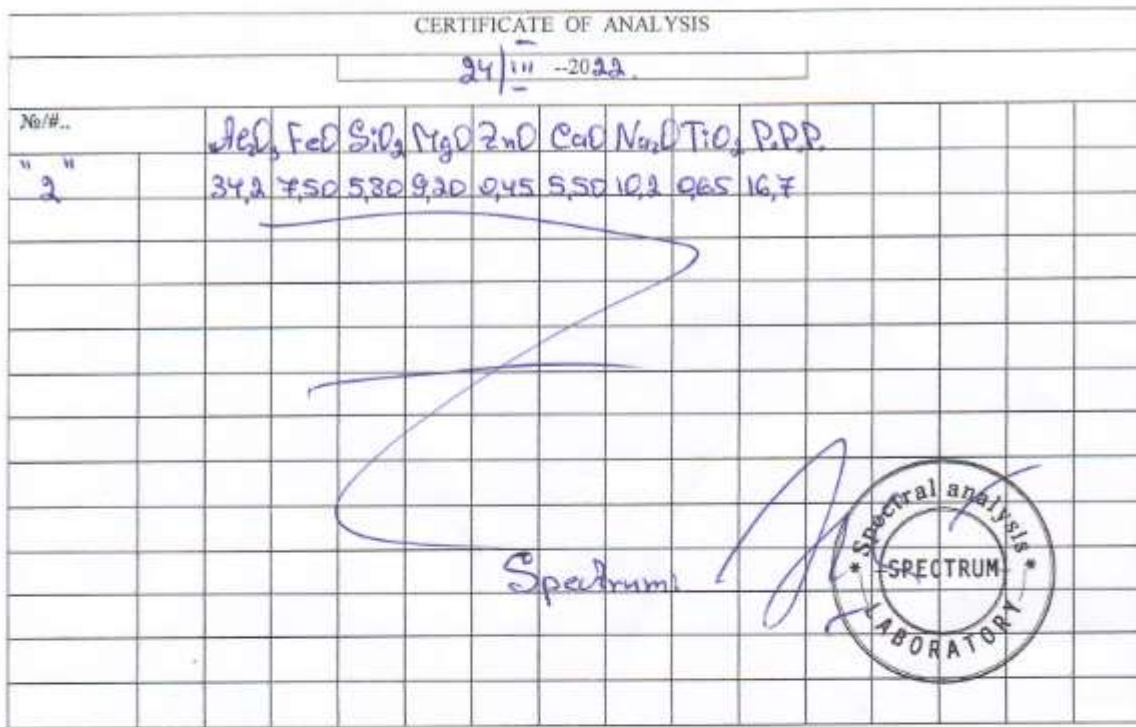 CERTIFICATE OF ANALYSIS
24/III --2022.
№/#..
Al₂O₃ FeO SiO₂ MgO ZnO CaO Na₂O TiO₂ P.P.P.
"2" 34,2 7,50 5,80 9,20 0,45 5,50 10,2 0,65 16,7
Spectrum
* Spectral analysis *
SPECTRUM
LABORATORY